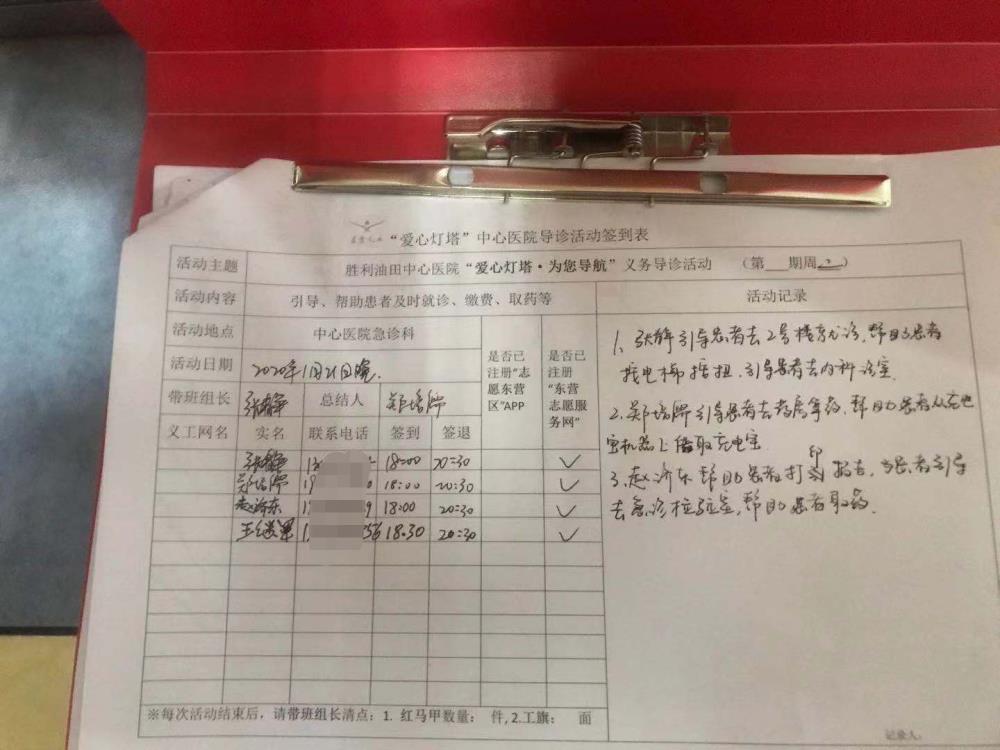 “爱心灯塔”中心医院导诊活动签到表
活动主题 胜利油田中心医院“爱心灯塔·为您导航”义务导诊活动 （第 期周二）
活动内容 引导、帮助患者及时就诊、缴费、取药等 活动记录
活动地点 中心医院急诊科 是否已注册“志愿东营区”APP 是否已注册“东营志愿服务网”
活动日期 2020年11月21日晚.
带班组长 张静 总结人
义工网名 实名 联系电话 签到 签退
张静 18:00 20:30 ✓
18:00 20:30 ✓
赵济东 9 18:00 20:30 ✓
王 56 18:30 20:30 ✓
1、张静引导患者去2号楼就诊,帮助患者
找电梯按扭.引导患者去内科诊室.
2.郑培 引导患者去药房拿药,帮助患者从充电
宝机器上借取充电宝
3.赵济东帮助患者打印报告, 患者引导
去急诊检验室,帮助患者取药.
※每次活动结束后，请带班组长清点：1. 红马甲数量： 件,2.工旗： 面
记录人: